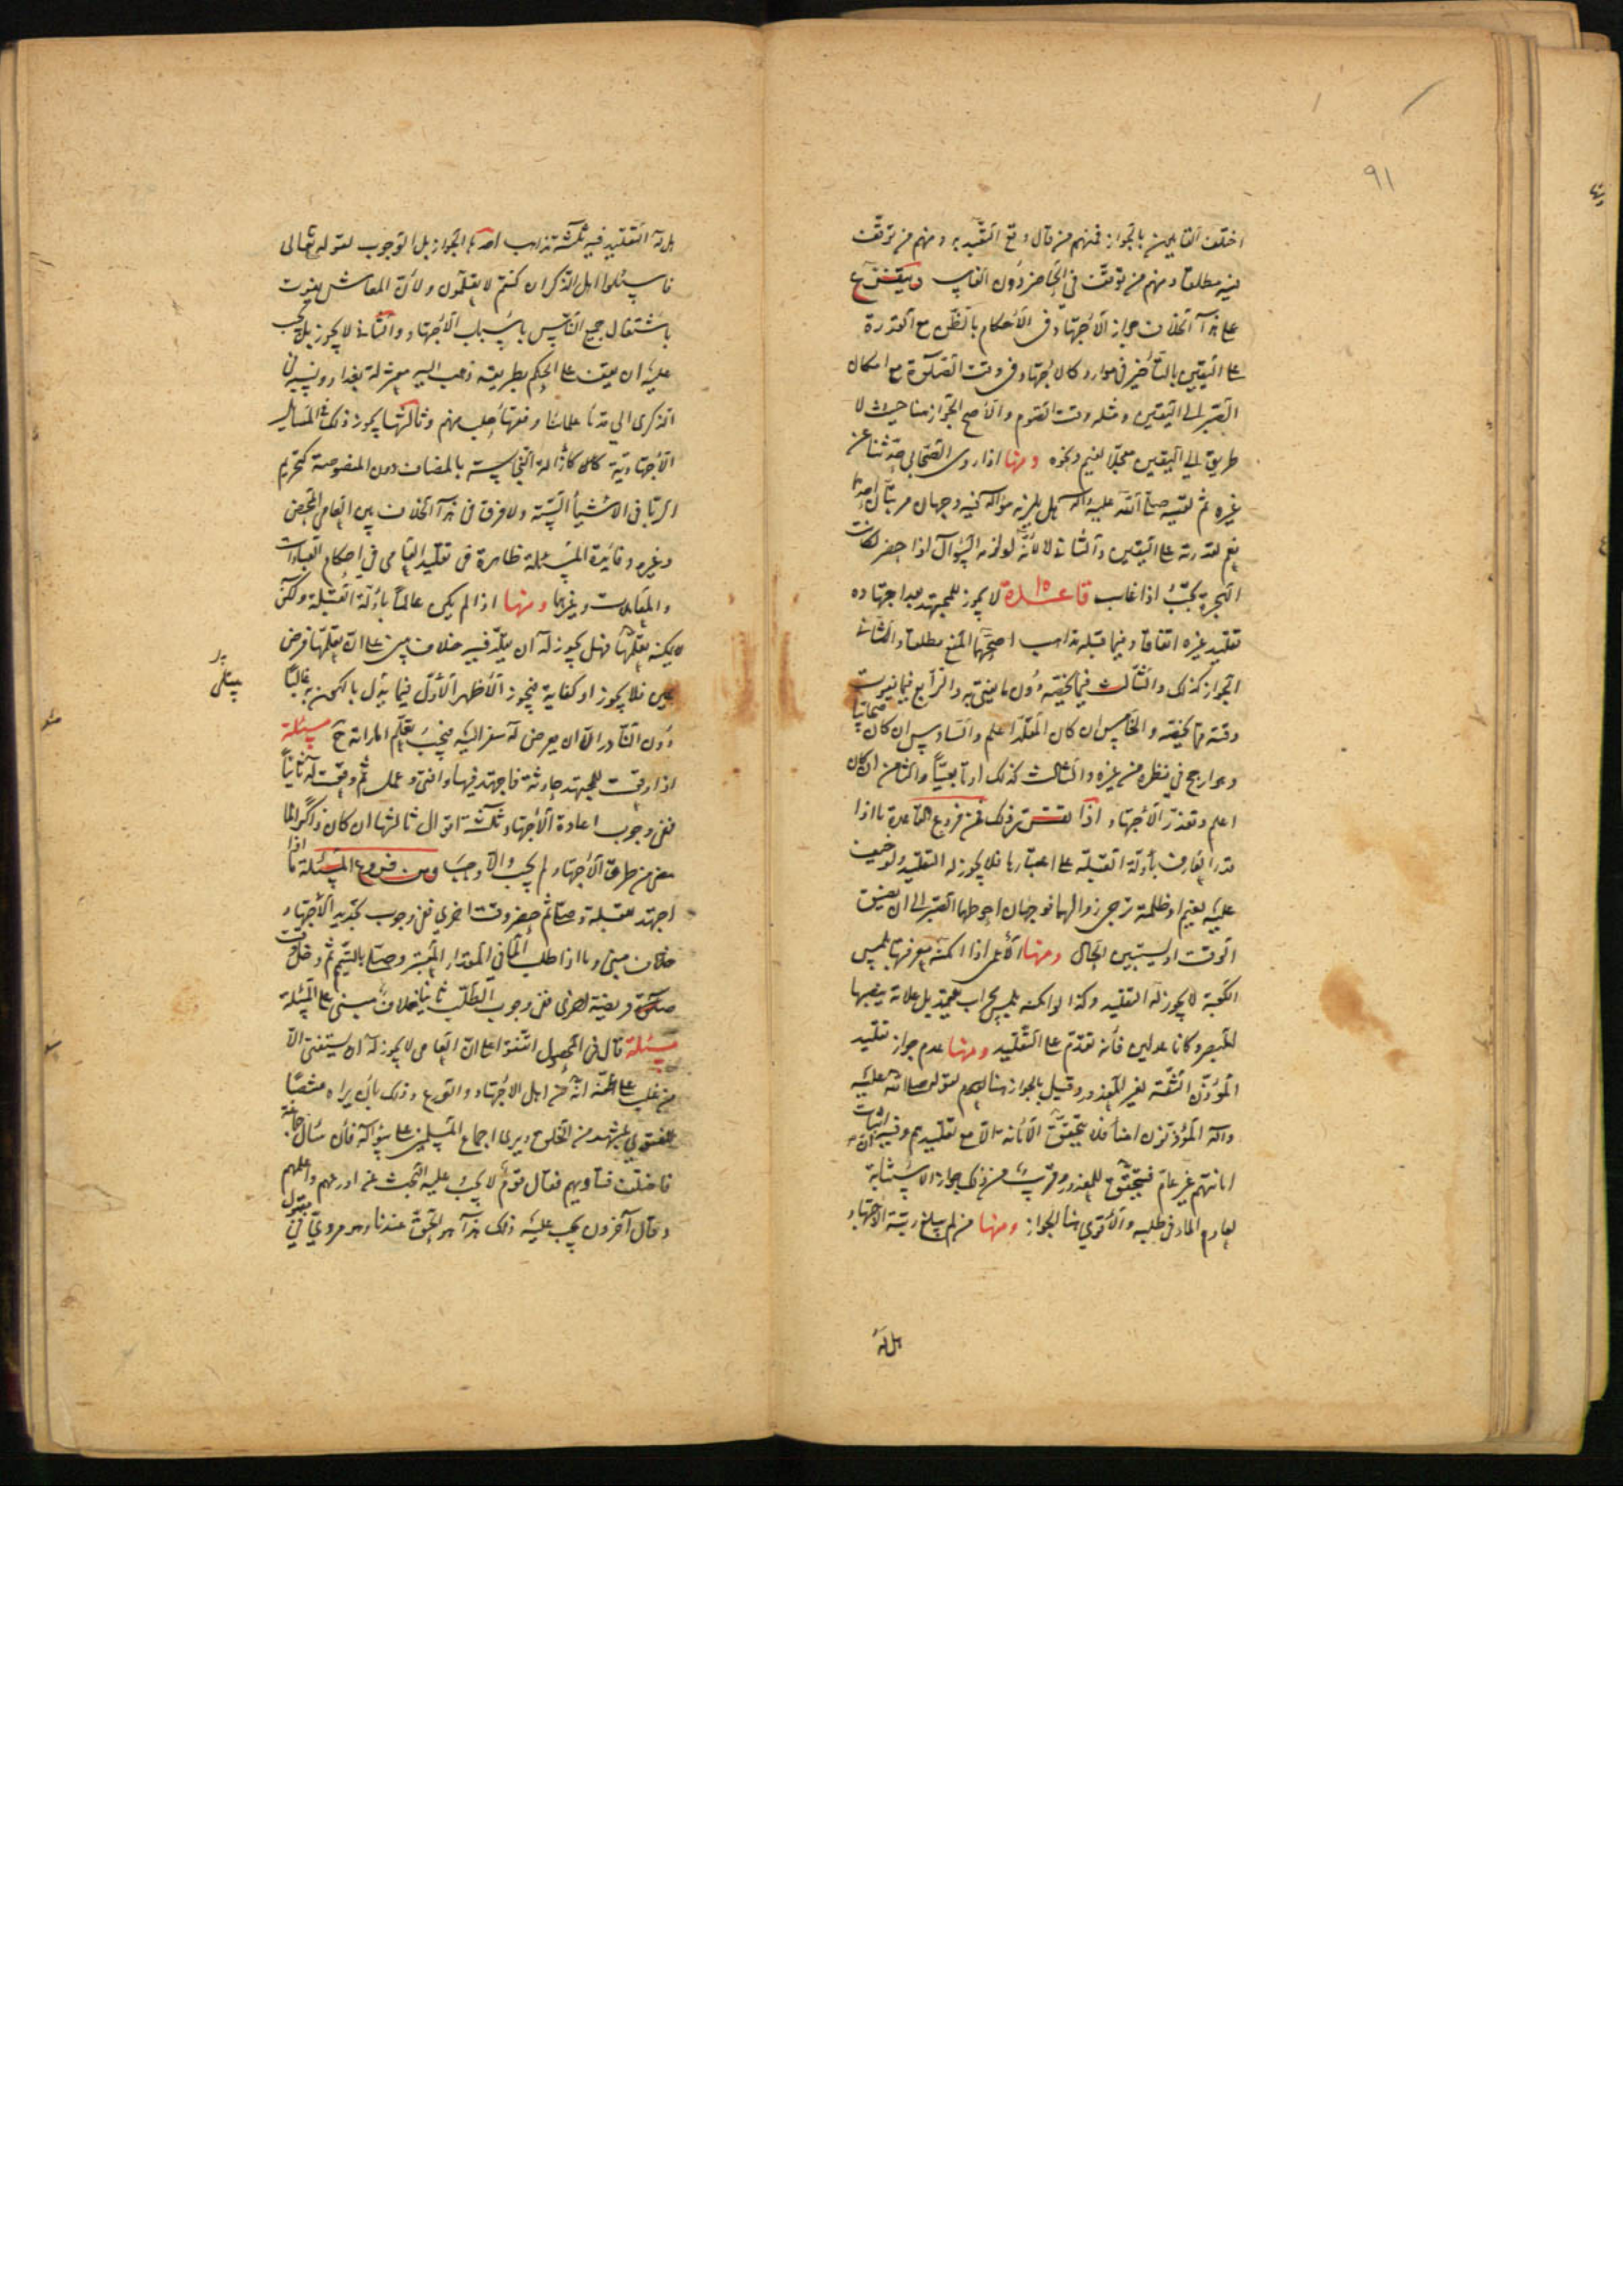 ٩١
اختلف القايلون بالجواز فمنهم من قال وقع التعبد به ومنهم من توقف
فيه مطلقا ومنهم من توقف في الحاضر دون الغايب ويتفرع
على هذا الخلاف جواز الاجتهاد في الاحكام بالظن مع القدرة
على اليقين بالتأخير في موارد كالاجتهاد في وقت الصلوة مع امكان
الصبر الى اليقين ومثله وقت الصوم والاصح الجواز هنا حيث لا
طريق الى اليقين معجلا لغيم ونحوه ومنها اذا روى الصحابي حديثا عن
غيره ثم لقيه صلى الله عليه وآله هل يلزمه سؤاله فيه وجهان مرتبان احدهما
نعم لقدرته على اليقين والثاني لا لانه لو لزمه السؤال اذا حضر لكانت
الهجرة تجب اذا غاب قاعدة لا يجوز للمجتهد بعد اجتهاده
تقليد غيره اتفاقا وفيما قبله مذاهب اصحها المنع مطلقا والثاني
الجواز كذلك والثالث فيما يخصه دون ما يفتي به والرابع فيما يفوت
وقته مما يخصه والخامس ان كان المقلد اعلم والسادس ان كان صحابيا
وهو ارجح في نظره من غيره والسابع كذلك او تابعيا والثامن ان كان
اعلم وتعذر الاجتهاد اذا تقرر ذلك فمن فروع القاعدة ما اذا
قدر العارف بأدلة القبلة على اعتبارها فلا يجوز له التقليد ولو خفيت
عليه لغيم او ظلمة ترجى زوالهما فوجهان احوطهما الصبر الى ان يضيق
الوقت او يستبين الحال ومنها الاعمى اذا امكنه معرفتها بلمس
الكعبة لا يجوز له التقليد وكذا لو امكنه بلمس محراب معتمد بل علامة ينصبها
المبصر وكانا عدلين فانه تقدم على التقليد ومنها عدم جواز تقليد
المؤذن الثقة لغير المعذور وقيل بالجواز هنا لعموم قوله صلى الله عليه
وآله المؤذنون امناء فلا يتحقق الامانة الا مع تقليدهم وفيه ان اثبات
امانتهم غير عام فيتحقق للمعذور وقريب من ذلك جواز الاستنابة
لعادم الماء في طلبه والاقوى هنا الجواز ومنها من لم يبلغ رتبة الاجتهاد
هل له
هل له التقليد فيه ثلثة مذاهب احدها الجواز بل الوجوب لقوله تعالى
فاسئلوا اهل الذكر ان كنتم لا تعلمون ولان المعاش يفوت
باشتغال جميع الناس باسباب الاجتهاد والثاني لا يجوز بل يجب
عليه ان يقف على الحكم بطريقه ذهب اليه معتزلة بغداد ونسبه في
الذكرى الى قدماء علمائنا وفقهاء حلب منهم وثالثها يجوز ذلك في المسائل
الاجتهادية كازالة النجاسة بالمضاف دون المنصوصة كتحريم
الربا في الاشياء الستة ولا فرق في هذا الخلاف بين العامي المحض
وغيره وفايدة المسئلة ظاهرة في تقليد العامي في احكام العبادات
والمعاملات وغيرها ومنها اذا لم يكن عالما بأدلة القبلة ولكن
يمكنه تعلمها فهل يجوز له ان يقلد فيه خلاف مبني على ان تعلمها فرض
عين فلا يجوز او كفاية فيجوز الاظهر الاول فيما يبتلى بالكون به غالبا
دون النادر الا ان يعرض له سفر اليه فيجب تعلم اماراته ح مسئلة
اذا وقعت للمجتهد حادثة فاجتهد فيها وافتى وعمل ثم وقعت له ثانيا
ففي وجوب اعادة الاجتهاد ثلثة اقوال ثالثها ان كان ذاكرا لما
مضى من طرق الاجتهاد لم يجب والا وجب ومن فروع المسئلة ما اذا
اجتهد للقبلة وصلى ثم حضر وقت اخرى ففي وجوب تجديد الاجتهاد
خلاف مبني وما اذا طلب الماء في المقدار المعتبر وصلى بالتيمم ثم دخل وقت
صلوة فريضة اخرى ففي وجوب الطلب ثانيا خلاف مبني على المسئلة
مسئلة قال في المحصول اتفقوا على ان العامي لا يجوز له ان يستفتي الا
من غلب على ظنه انه من اهل الاجتهاد والورع وذلك بان يراه منتصبا
للفتوى بمشهد من الخلق ويرى اجماع المسلمين على سؤاله فان سأل جماعة
فاختلفت فتاويهم فقال قوم لا يجب عليه البحث عن اورعهم واعلمهم
وقال آخرون يجب عليه ذلك هذا هو الحق عندنا وهو مروي في مقبول